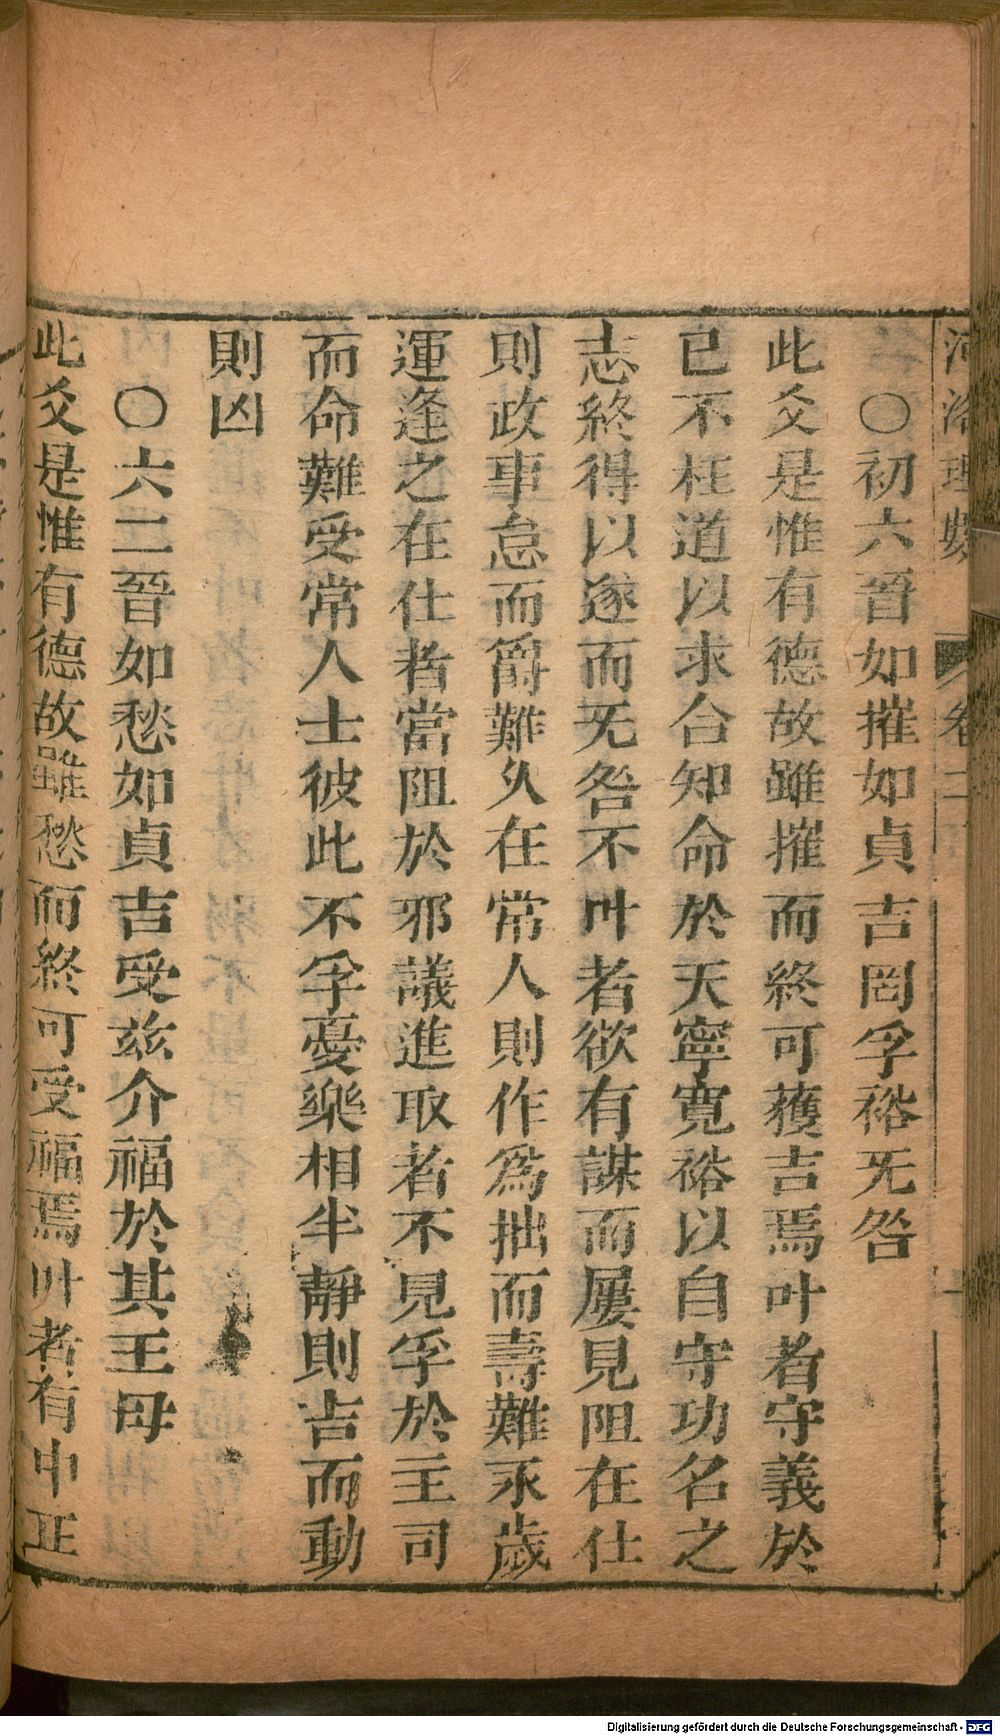 河洛理數 卷二
○初六晉如摧如貞吉罔孚裕无咎
此爻是惟有德故雖摧而終可獲吉焉叶者守義於
已不枉道以求合知命於天寧寬裕以自守功名之
志終得以遂而无咎不叶者欲有謀而屢見阻在仕
則政事怠而爵難久在常人則作為拙而壽難永歲
運逢之在仕者當阻於邪議進取者不見孚於主司
而命難受常人士彼此不孚憂樂相半靜則吉而動
則凶
○六二晉如愁如貞吉受玆介福於其王母
此爻是惟有德故雖愁而終可受福焉叶者有中正
Digitalisierung gefördert durch die Deutsche Forschungsgemeinschaft - DFG